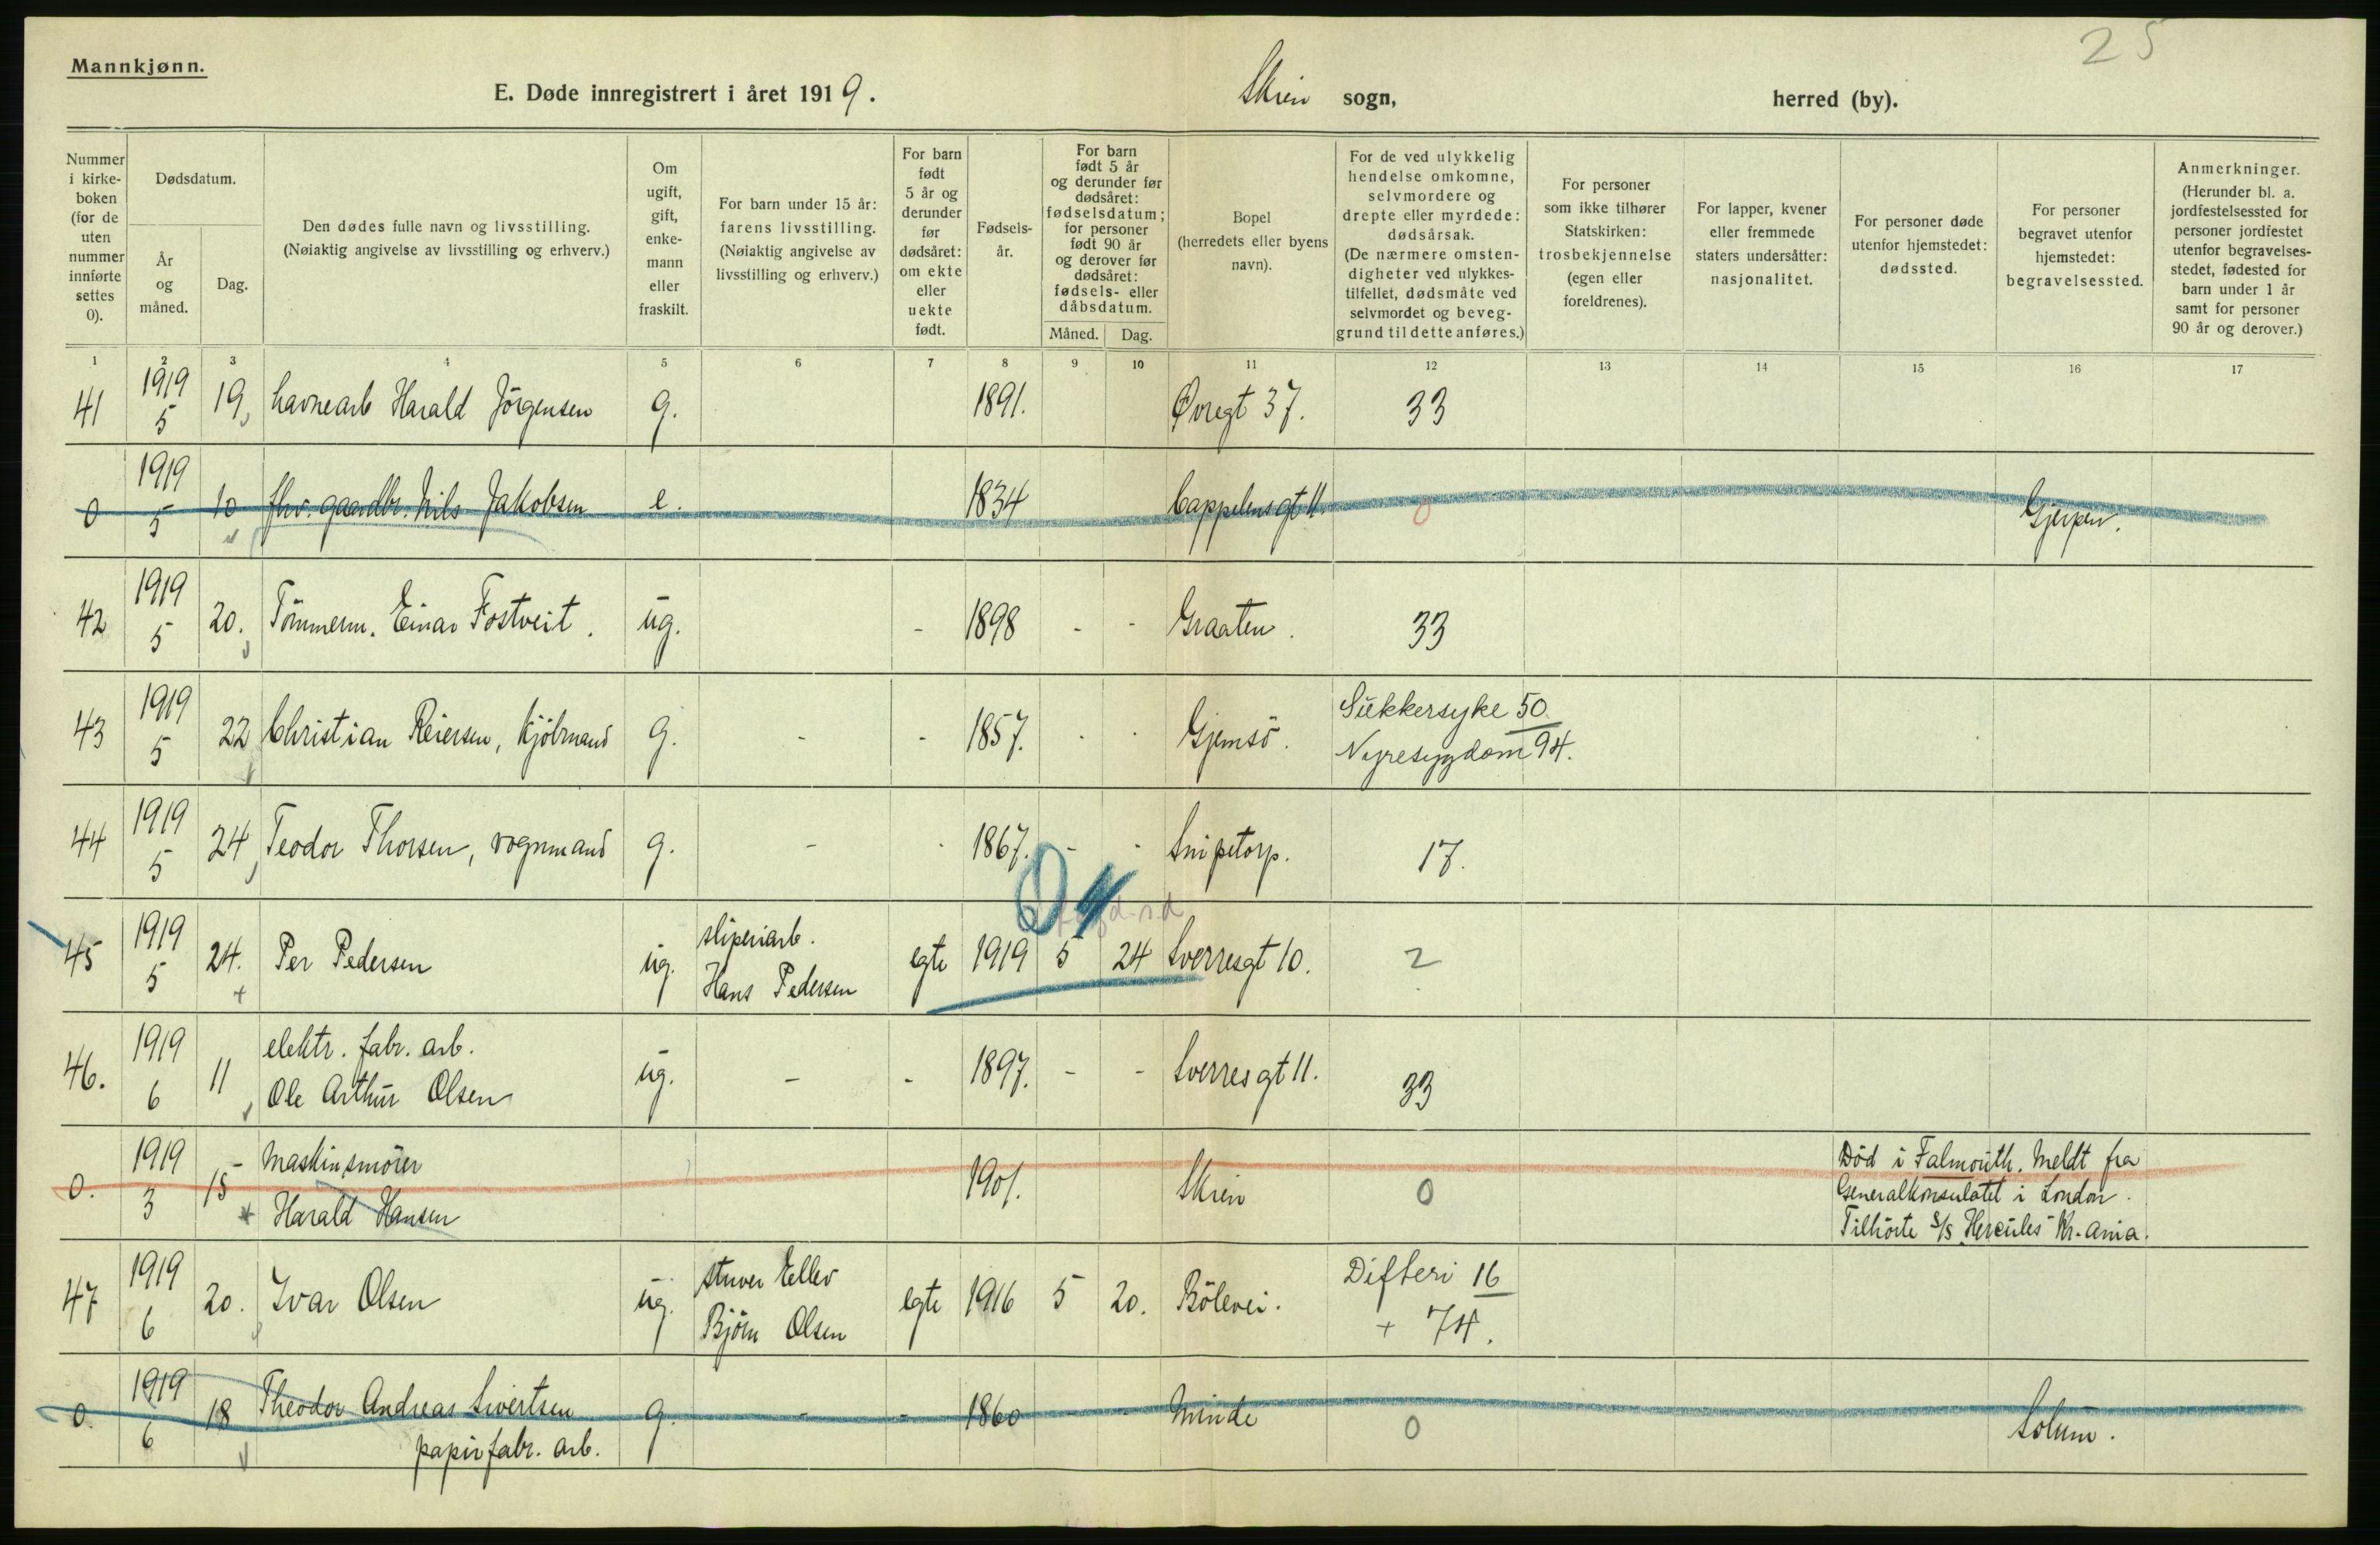 25
Mannkjønn.
E. Døde innregistrert i året 1919. Skien sogn, herred (by).
Nummer i kirke- boken (for de uten nummer innførte settes 0).
Dødsdatum.
År og måned.
Dag.
Den dødes fulle navn og livsstilling. (Nøiaktig angivelse av livsstilling og erhverv.)
Om ugift, gift, enke- mann eller fraskilt.
For barn under 15 år: farens livsstilling. (Nøiaktig angivelse av livsstilling og erhverv.)
For barn født 5 år og derunder før dødsåret: om ekte eller uekte født.
Fødsels- år.
For barn født 5 år og derunder før dødsåret: fødselsdatum; for personer født 90 år og derover før dødsåret: fødsels- eller dåbsdatum.
Måned. Dag.
Bopel (herredets eller byens navn).
For de ved ulykkelig hendelse omkomne, selvmordere og drepte eller myrdede: dødsårsak. (De nærmere omsten- digheter ved ulykkes- tilfellet, dødsmåte ved selvmordet og beveg- grund til dette anføres.)
For personer som ikke tilhører Statskirken: trosbekjennelse (egen eller foreldrenes).
For lapper, kvener eller fremmede staters undersåtter: nasjonalitet.
For personer døde utenfor hjemstedet: dødssted.
For personer begravet utenfor hjemstedet: begravelsessted.
Anmerkninger. (Herunder bl. a. jordfestelsessted for personer jordfestet utenfor begravelses- stedet, fødested for barn under 1 år samt for personer 90 år og derover.)
1 2 3 4 5 6 7 8 9 10 11 12 13 14 15 16 17
41 1919 5 19, havnearb Harald Jörgensen g. 1891. Øvregt 37. 33
0 1919 5 10 fhv. gaardbr. Nils Jakobsen e. 1834 Cappelensgt 11. 0 Gjerpen.
42 1919 5 20. Tömmerm. Einar Fostveit. ug. - 1898 - - Graaten. 33
43 1919 5 22 Christian Reiersen, kjöbmand g. - - 1857. - - Gjemsö. Sukkersyke 50.
Nyresygdom 94.
44 1919 5 24 Teodor Thorsen, vognmand g. - - 1867. - - Snipetorp. 17.
45 1919 5 24. Per Pedersen ug. sliperiarb.
Hans Pedersen egte 1919 5 24 Sverresgt 10. 2
46. 1919 6 11 elektr. fabr. arb.
Ole Arthur Olsen ug. - - 1897. - - Sverresgt 11. 33
0. 1919 3 15 Maskinsmører
Harald Hansen 1901. Skien 0 Död i Falmouth. Meldt fra
Generalkonsulatet i London.
Tilhörte S/S "Hercules" Kr.ania.
47 1919 6 20. Ivar Olsen ug. stuver Ellev
Bjørn Olsen egte 1916 5 20. Bölevei. Difteri 16
+ 74.
0. 1919 6 18 Theodor Andreas Sivertsen
papirfabr. arb. g. - - 1860 - - Minde 0 Solum.